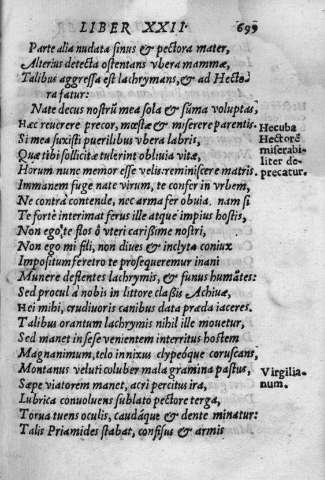 LIBER XXII. 699
Parte alia nudata sinus & pectora mater,
Alterius detecta ostentans vbera mammæ,
Talibus aggressa est lachrymans, & ad Hectora
fatur:
Nate decus nostrũ mea sola & sũma voluptas,
Hæc reuerere precor, mœstæ & miserere parentis.
Si mea suxisti puerilibus vbera labris,
Quæ tibi sollicitæ tulerint obliuia vitæ,
Horum nunc memor esse velis: reminiscere matris.
Immanem fuge nate virum, te confer in vrbem,
Ne contrà contende, nec arma fer obuia. nam si
Te fortè interimat ferus ille atque impius hostis,
Non ego te flos ô vteri carissime nostri,
Non ego mi fili, non diues & inclyta coniux
Impositum feretro te prosequeremur inani
Munere deflentes lachrymis, & funus humãtes:
Sed procul à nobis in littore classis Achiuæ,
Hei mihi, crudiuoris canibus data præda iaceres.
Talibus orantum lachrymis nihil ille mouetur,
Sed manet in sese venientem interritus hostem
Magnanimum, telo innixus clypeóque coruscans,
Montanus veluti coluber mala gramina pastus,
Sæpe viatorem manet, acri percitus ira,
Lubrica conuoluens sublato pectore terga,
Torua tuens oculis, caudáque & dente minatur:
Talis Priamides stabat, confisus & armis
Hecuba
Hectorẽ
miserabi-
liter de-
precatur.
Virgilia-
num.